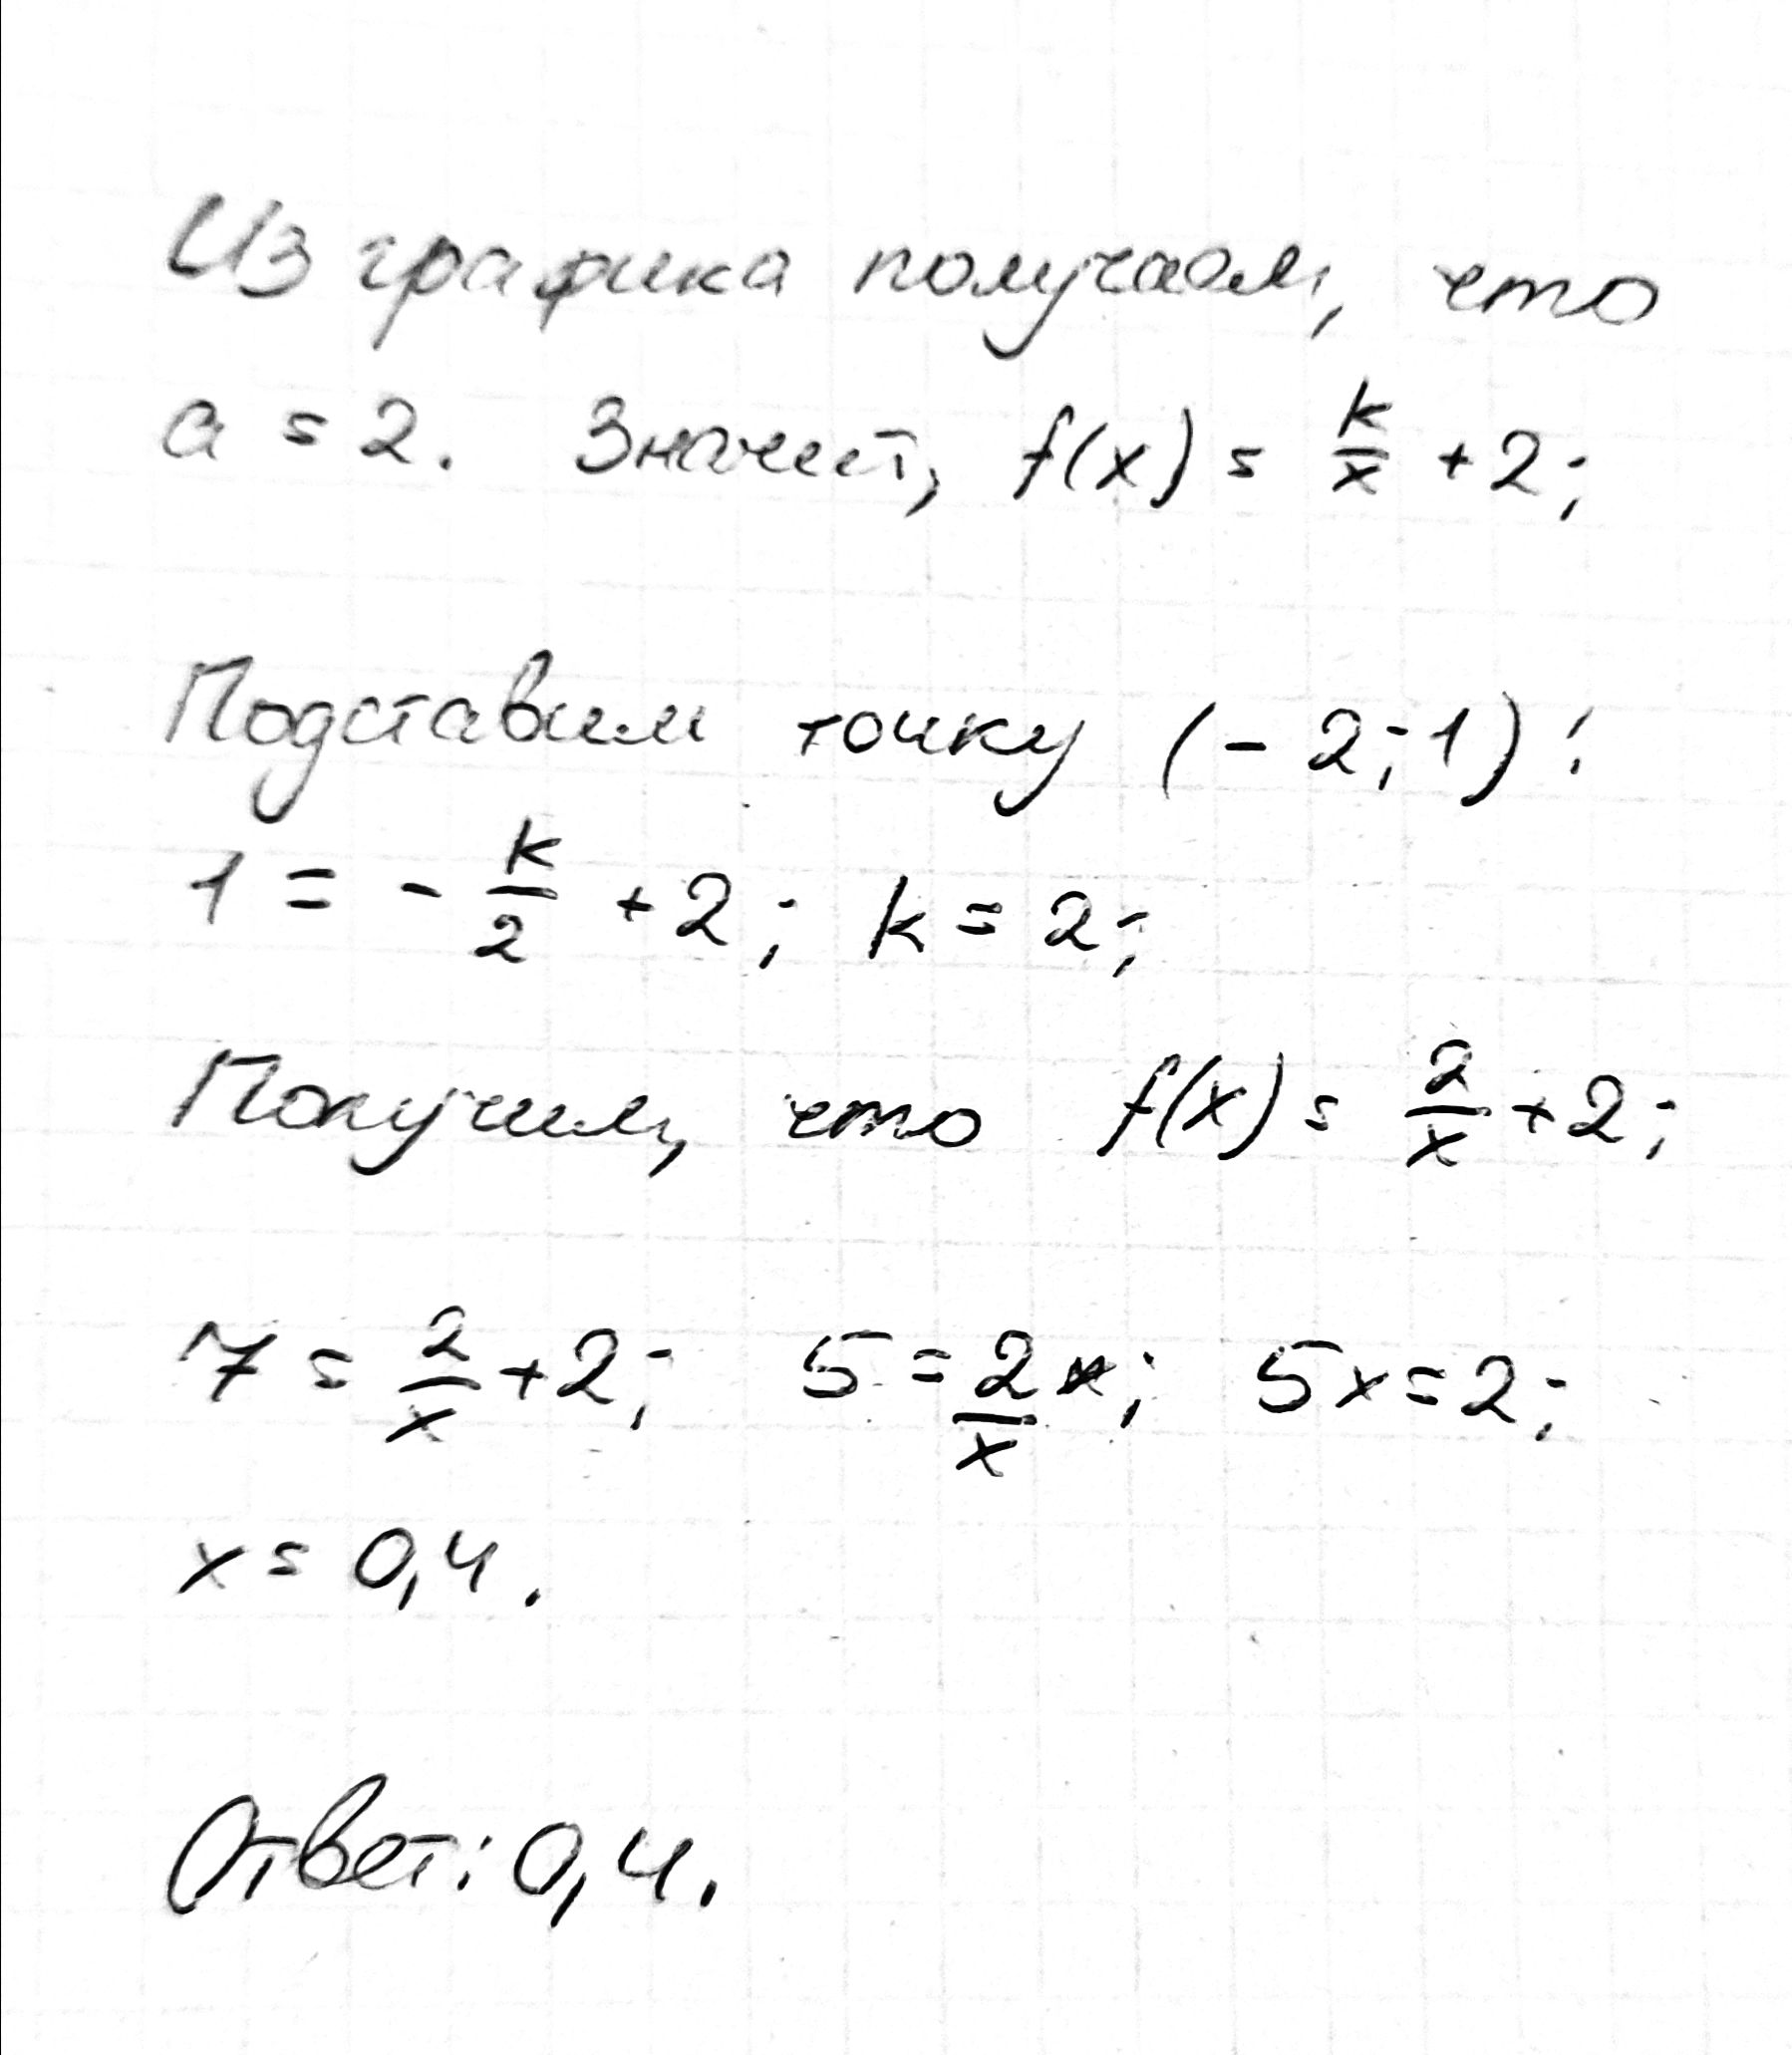 Из графика получаем, что
a = 2. Значит, f(x) = k/x + 2;
Подставим точку (- 2; 1):
1 = - k/2 + 2; k = 2;
Получим, что f(x) = 2/x + 2;
7 = 2/x + 2; 5 = 2/x; 5x = 2;
x = 0,4.
Ответ: 0,4.